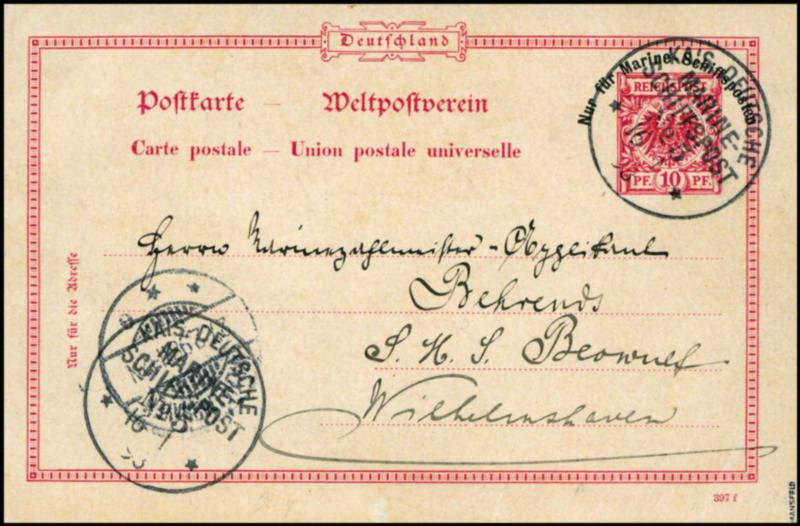 Deutschland
Nur für Marine-Schiffsposten
REICHSPOST
PF. 10 PF.
KAIS. DEUTSCHE
MARINE-
SCHIFFSPOST
Postkarte – Weltpostverein
Carte postale – Union postale universelle
Nur für die Adresse
Herrn Marinezahlmeister-Applikant
Behrends
S. M. S. Beowulf
Wilhelmshaven
KAIS. DEUTSCHE
MARINE-
SCHIFFSPOST
397 f
MANSFELD